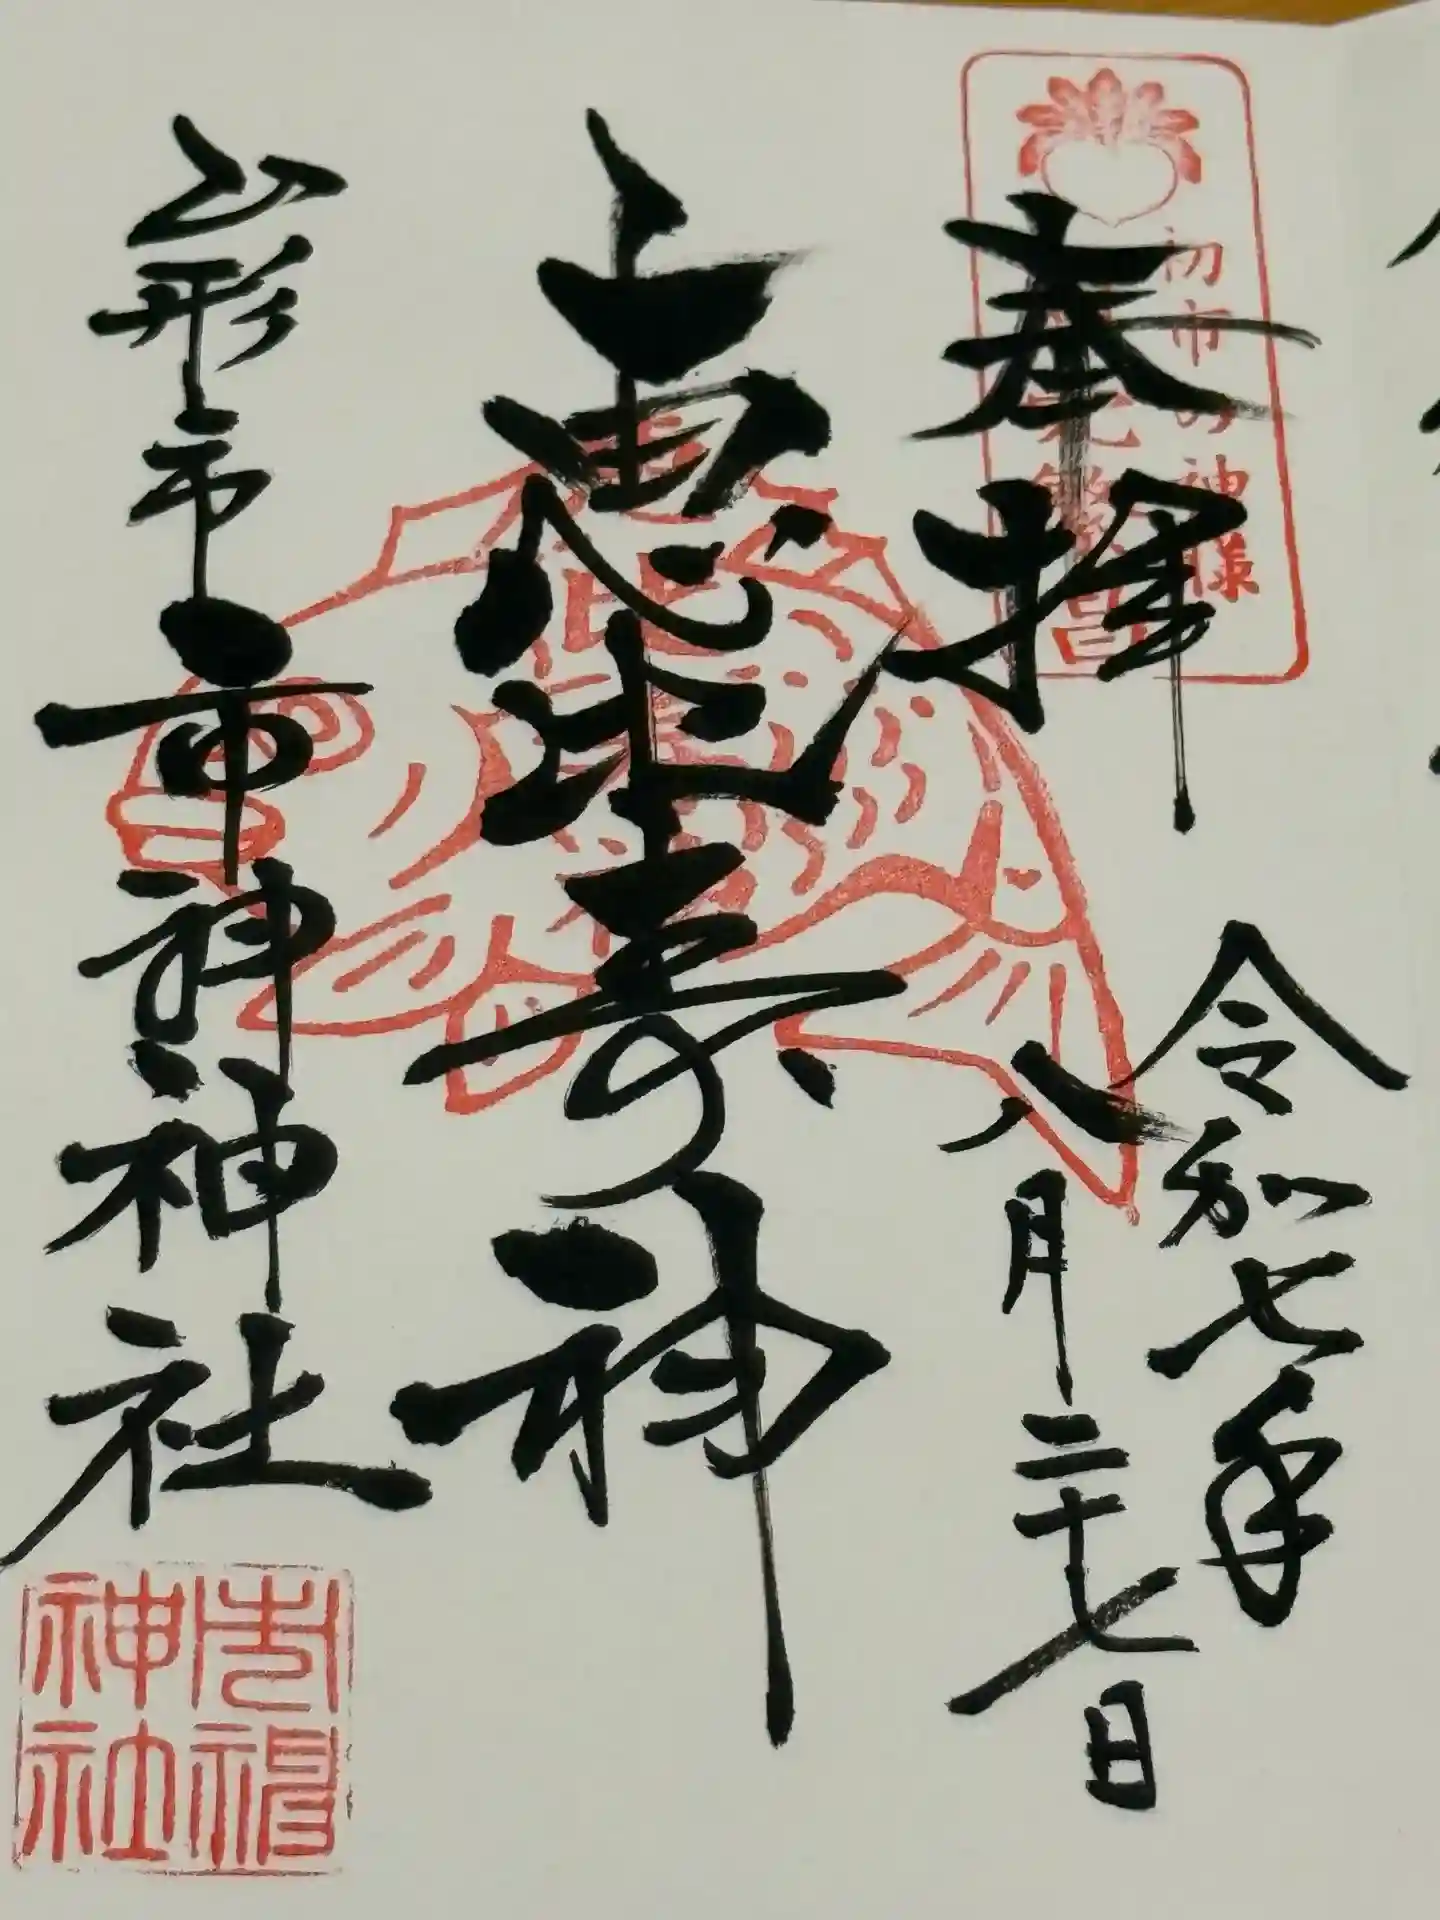 初市の神様
奉拝
令和七年
八月二十七日
恵比寿神
山形市
市神神社
市神
神社